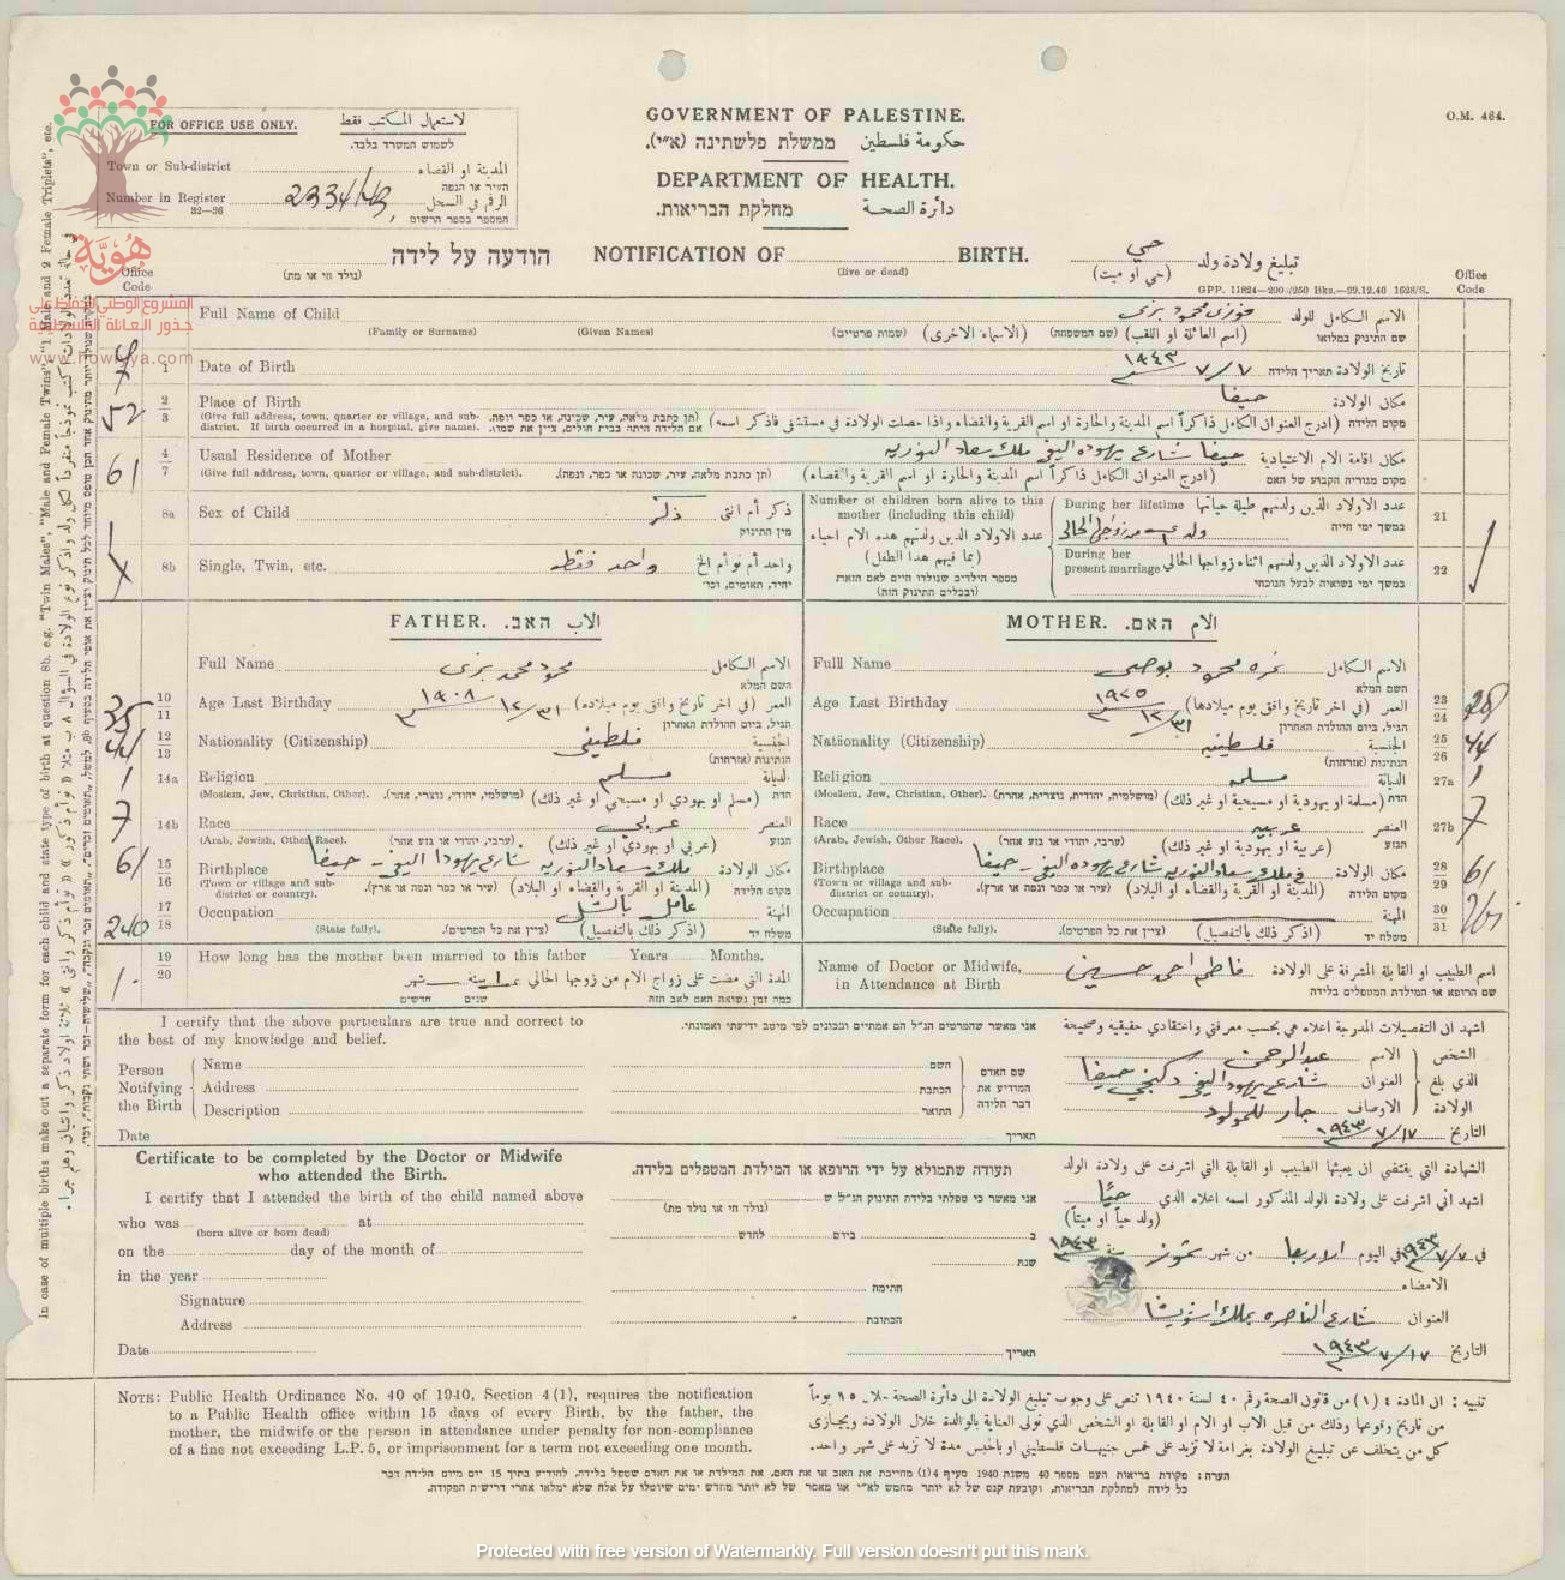 GOVERNMENT OF PALESTINE.
حكومة فلسطين ממשלת פלשתינה (א״י).
DEPARTMENT OF HEALTH.
دائرة الصحة מחלקת הבריאות.
O.M. 464.
FOR OFFICE USE ONLY. لاستعمال المكتب فقط
לשמוש המשרד בלבד.
Town or Sub-district المدينة او القضاء
העיר או הנפה
Number in Register 2334/43 الرقم في السجل
32—36 המספר בספר הרשום
הודעה על לידה NOTIFICATION OF BIRTH. تبليغ ولادة ولد حي
(נולד חי או מת) (live or dead) (حي او ميت)
هُويَّة
المشروع الوطني للحفاظ على
جذور العائلة الفلسطينية
www.howiyya.com
Office Code
Office Code
Full Name of Child فوزي محمود بزي الاسم الكامل للولد
(Family or Surname) (Given Names) (שמות פרטיים) (الاسماء الاخرى) (שם המשפחה) (اسم العائلة او اللقب) שם התינוק במלואו
1 Date of Birth ٧/٧ ١٩٤٣ تاريخ الولادة תאריך הלידה
52 2/3 Place of Birth حيفا مكان الولادة
(Give full address, town, quarter or village, and sub-district. If birth occurred in a hospital, give name). (ادرج العنوان الكامل ذاكراً اسم المدينة والحارة او اسم القرية والقضاء واذا حصلت الولادة في مستشفى فاذكر اسمه) מקום הלידה
61 4/7 Usual Residence of Mother حيفا شارع مكان اقامة الام الاعتيادية
(Give full address, town, quarter or village, and sub-district). (תן כתבת מלאה, עיר, שכונה או כפר, ונפה). (ادرج العنوان الكامل ذاكراً اسم المدينة والحارة او اسم القرية والقضاء) מקום מגוריה הקבוע של האם
8a Sex of Child ذكر ذكر أم انثى
מין התינוק
8b Single, Twin, etc. واحد فقط واحد أم توأم الخ
יחיד, תאומים, וכו׳
Number of children born alive to this mother (including this child)
عدد الاولاد الذين ولدتهم هذه الام احياء
(بما فيهم هذا الطفل)
מספר הילדים שנולדו חיים לאם הזאת
(ובכללם התינוק הזה)
During her lifetime عدد الاولاد الذين ولدتهم طيلة حياتها 21
במשך ימי חייה
During her present marriage عدد الاولاد الذين ولدتهم اثناء زواجها الحالي 22
במשך ימי נשואיה לבעל הנוכחי
FATHER. الاب האב.
Full Name محمود محمد بزي الاسم الكامل
השם המלא
35 10/11 Age Last Birthday ٣١/١٢ ١٩٠٨ العمر (في اخر تاريخ وافق يوم ميلاده)
הגיל, ביום ההולדת האחרון
44 12/13 Nationality (Citizenship) فلسطيني الجنسية
הנתינות (אזרחות)
1 14a Religion مسلم الديانة
(Moslem, Jew, Christian, Other). (מושלמי, יהודי, נוצרי, אחר). (مسلم او يهودي او مسيحي او غير ذلك) הדת
7 14b Race عربي العنصر
(Arab, Jewish, Other Race). (ערבי, יהודי או גזע אחר) (عربي او يهودي او غير ذلك) הגזע
61 15/16 Birthplace حيفا مكان الولادة
(Town or village and sub-district or country). (עיר או כפר ונפה או ארץ). (المدينة او القرية والقضاء او البلاد) מקום הלידה
240 17/18 Occupation عامل المهنة
(State fully). (ציין את כל הפרטים). (اذكر ذلك بالتفصيل) משלח יד
19/20 How long has the mother been married to this father Years Months.
المدة التي مضت على زواج الام من زوجها الحالي سنة شهر
כמה זמן נשואה האם לאב הזה שנים חדשים
MOTHER. الام האם.
Full Name محمود الاسم الكامل
השם המלא
Age Last Birthday ٣١/١٢ ١٩٢٥ العمر (في اخر تاريخ وافق يوم ميلادها) 23/24
הגיל, ביום ההולדת האחרון
Nationality (Citizenship) فلسطينية الجنسية 25/26 44
הנתינות (אזרחות)
Religion مسلمه الديانة 27a 1
(Moslem, Jew, Christian, Other). (מושלמית, יהודית, נוצרית, אחרת). (مسلمة او يهودية او مسيحية او غير ذلك) הדת
Race عربيه العنصر 27b 7
(Arab, Jewish, Other Race). (ערבי, יהודי או גזע אחר) (عربية او يهودية او غير ذلك) הגזע
Birthplace حيفا مكان الولادة 28/29 61
(Town or village and sub-district or country). (עיר או כפר ונפה או ארץ). (المدينة او القرية والقضاء او البلاد) מקום הלידה
Occupation المهنة 30/31
(State fully). (ציין את כל הפרטים). (اذكر ذلك بالتفصيل) משלח יד
Name of Doctor or Midwife. فاطمة احمد حسين اسم الطبيب او القابلة المشرفة على الولادة
in Attendance at Birth שם הרופא או המילדת המטפלים בלידה
I certify that the above particulars are true and correct to the best of my knowledge and belief.
אני מאשר שהפרטים הנ״ל הם אמתיים ונכונים לפי מיטב ידיעתי ואמונתי.
اشهد ان التفصيلات المدرجة اعلاه هي بحسب معرفتي واعتقادي حقيقية وصحيحة
Person Notifying the Birth Name השם שם האדם المודיע את דבר הלידה الشخص الذي بلغ الولادة الاسم عبد الرحمن
Address הכתבת العنوان شارع حيفا
Description התואר الاوصاف جار للمولود
Date תאריך التاريخ ١٧/٧ ١٩٤٣
Certificate to be completed by the Doctor or Midwife who attended the Birth.
תעודה שתמולא על ידי הרופא או המילדת המטפלים בלידה.
الشهادة التي يقتضي ان يعبئها الطبيب او القابلة التي اشرفت على ولادة الولد
I certify that I attended the birth of the child named above
אני מאשר כי טפלתי בלידת התינוק הנ״ל ש
اشهد اني اشرفت على ولادة الولد المذكور اسمه اعلاه الذي حيًّا
who was at
(born alive or born dead) (נולד חי או נולד מת) (ولد حياً او ميتاً)
on the day of the month of ב ביום לחדש في ٧/٧ ١٩٤٣ في اليوم الاربعا من شهر تموز سنة ١٩٤٣
in the year שנת
Signature חתימה الامضاء
Address הכתובת العنوان شارع الناصره
Date תאריך التاريخ ١٧/٧ ١٩٤٣
NOTE: Public Health Ordinance No. 40 of 1940, Section 4 (1), requires the notification
to a Public Health office within 15 days of every Birth, by the father, the
mother, the midwife or the person in attendance under penalty for non-compliance
of a fine not exceeding L.P. 5, or imprisonment for a term not exceeding one month.
تنبيه : ان المادة ٤ (١) من قانون الصحة رقم ٤٠ لسنة ١٩٤٠ تنص على وجوب تبليغ الولادة الى دائرة الصحة خلال ١٥ يوماً
من تاريخ وقوعها وذلك من قبل الاب او الام او القابلة او الشخص الذي تولى العناية بالوالدة خلال الولادة ويجازى
كل من يتخلف عن تبليغ الولادة بغرامة لا تزيد على خمس جنيهات فلسطيني او بالحبس مدة لا تزيد على شهر واحد.
In case of multiple births make out a separate form for each child and state type of birth at question 8b. e.g. "Twin Males", "Male and Female Twins", "1 Male and 2 Female Triplets", etc.
Protected with free version of Watermarkly. Full version doesn't put this mark.